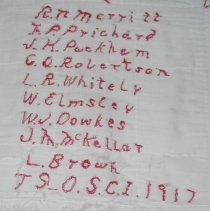 R.N Merritt
F.P Prichard
J.H. Packham
G.O. Robertson
L.R. Whitely
W. Elmsley
W.J. Dowkes
J.M. McKellar
L. Brown
T S_O.S.C.I. 1917